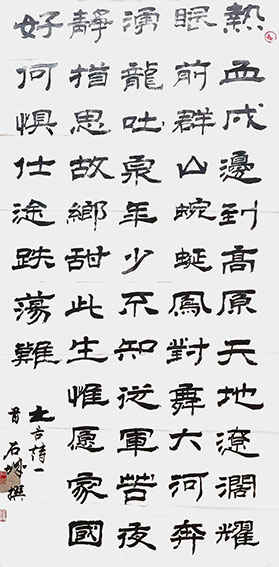 熱血戍邊到高原天地遼闊耀
眼前群山蜿蜒鳳對舞大河奔
湧龍吐泉年少不知從軍苦夜
靜揩思故鄉甜此生惟愿家國
好何惧仕途跌蕩難
吉詩一
首石撰